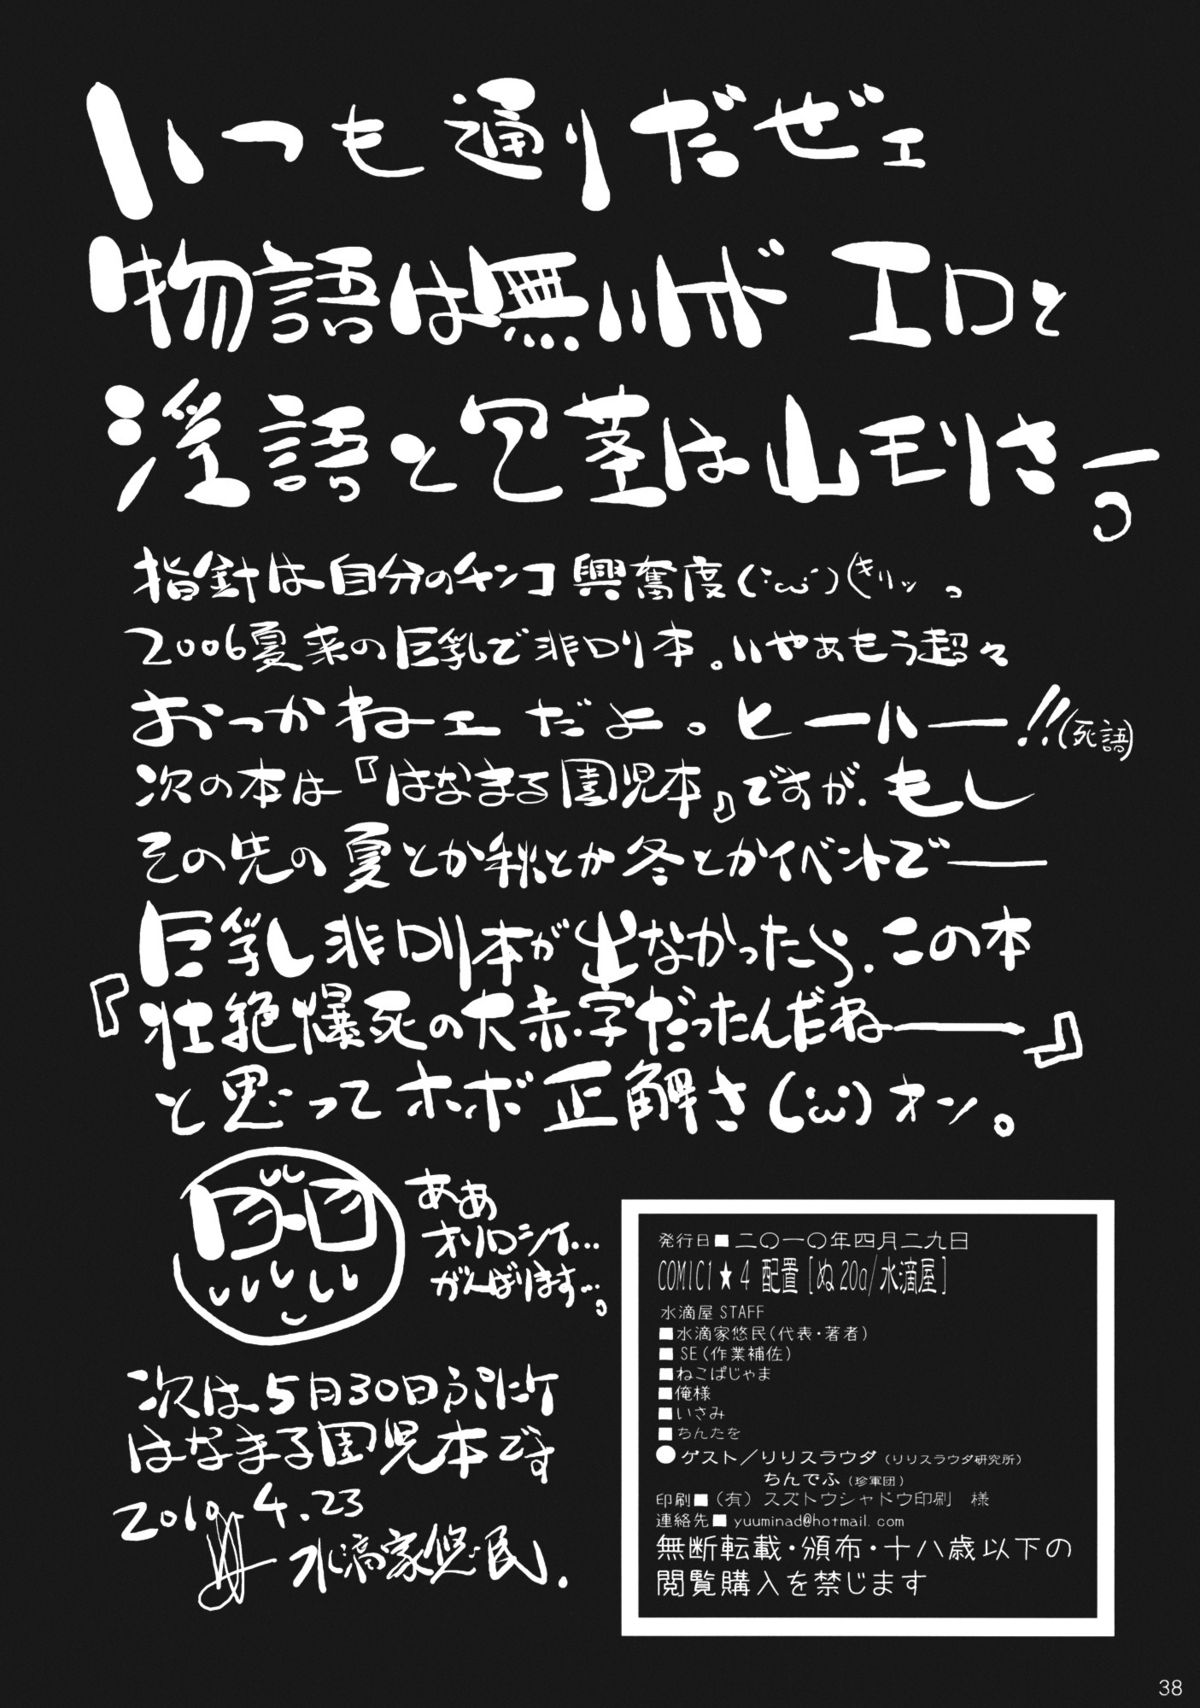 いつも通りだぜェ
物語は無いけど エロと
淫語と包茎は山モリさー。
指針は自分のチンコ興奮度(´・ω・`)(キリッ)。
2006夏来の巨乳で非ロリ本。いやぁもう超々
おっかねェだよ。ヒーハー!!(死語)
次の本は『はなまる園児本』ですが、もし
その先の夏とか秋とか冬とかイベントで──
『巨乳し非ロリ本が出なかったら、この本
壮絶爆死の大赤字だったんだねー』
と思ってホボ正解さ(´・ω・`)オン。
ああ
オソロシイ…
がんばります…。
次は5月30日ぷにケ
はなまる園児本です
2010.4.23
水滴家悠民.
発行日■二〇一〇年四月二九日
COMIC1★4 配置[ぬ20a/水滴屋]
水滴屋STAFF
■水滴家悠民(代表・著者)
■SE(作業補佐)
■ねこぱじゃま
■俺様
■いさみ
■ちんたを
●ゲスト／リリスラウダ(リリスラウダ研究所)
ちんでふ(珍軍団)
印刷■(有)スズトウシャドウ印刷 様
連絡先■yuuminad@hotmail.com
無断転載・頒布・十八歳以下の
閲覧購入を禁じます
38